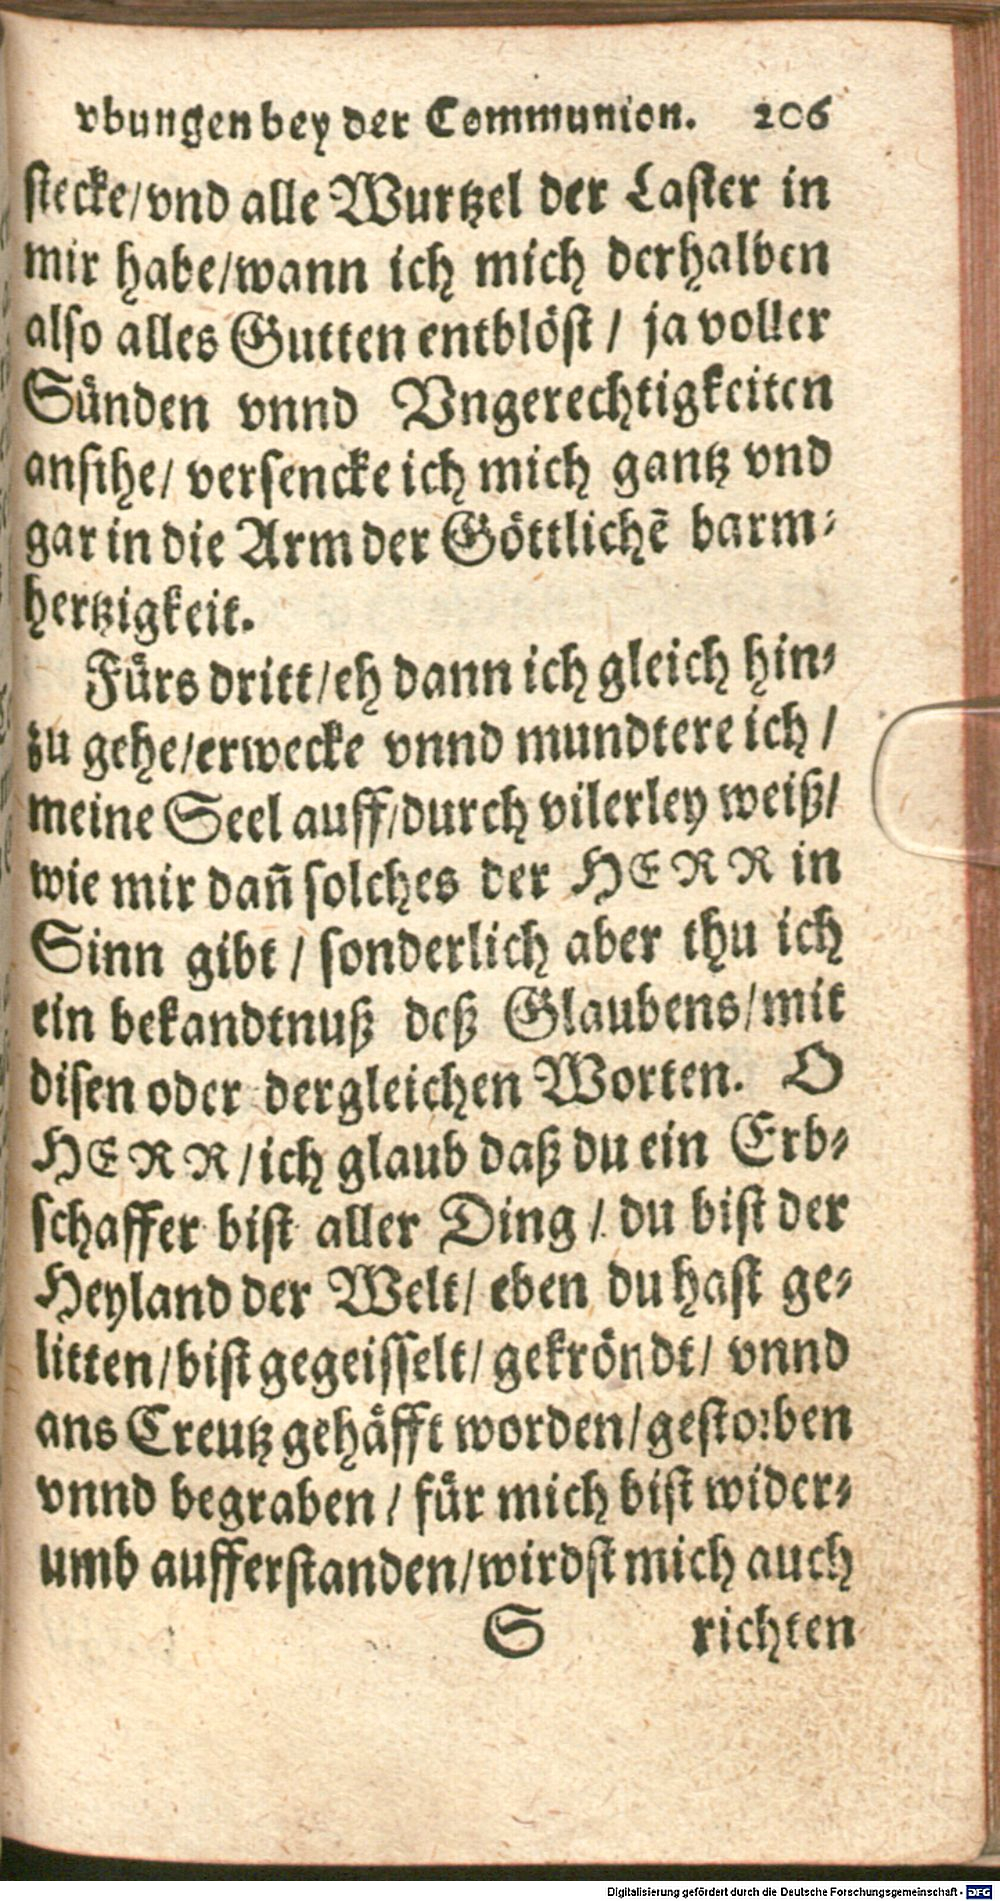 vbungen bey der Communion. 206
stecke/vnd alle Wurtzel der Laster in
mir habe/wann ich mich derhalben
also alles Gutten entblöst / ja voller
Sünden vnnd Vngerechtigkeiten
ansihe/ versencke ich mich gantz vnd
gar in die Arm der Göttlichē barm-
hertzigkeit.
Fürs dritt/eh dann ich gleich hin-
zu gehe/erwecke vnnd mundtere ich /
meine Seel auff/durch vilerley weiß/
wie mir dañ solches der HERR in
Sinn gibt / sonderlich aber thu ich
ein bekandtnuß deß Glaubens/mit
disen oder dergleichen Worten. O
HERR/ich glaub daß du ein Erb-
schaffer bist aller Ding / du bist der
Heyland der Welt/ eben du hast ge-
litten/bist gegeisselt/ gekröndt/ vnnd
ans Creutz gehäfft worden/gestorben
vnnd begraben / für mich bist wider-
umb aufferstanden/wirdst mich auch
S richten
Digitalisierung gefördert durch die Deutsche Forschungsgemeinschaft - DFG